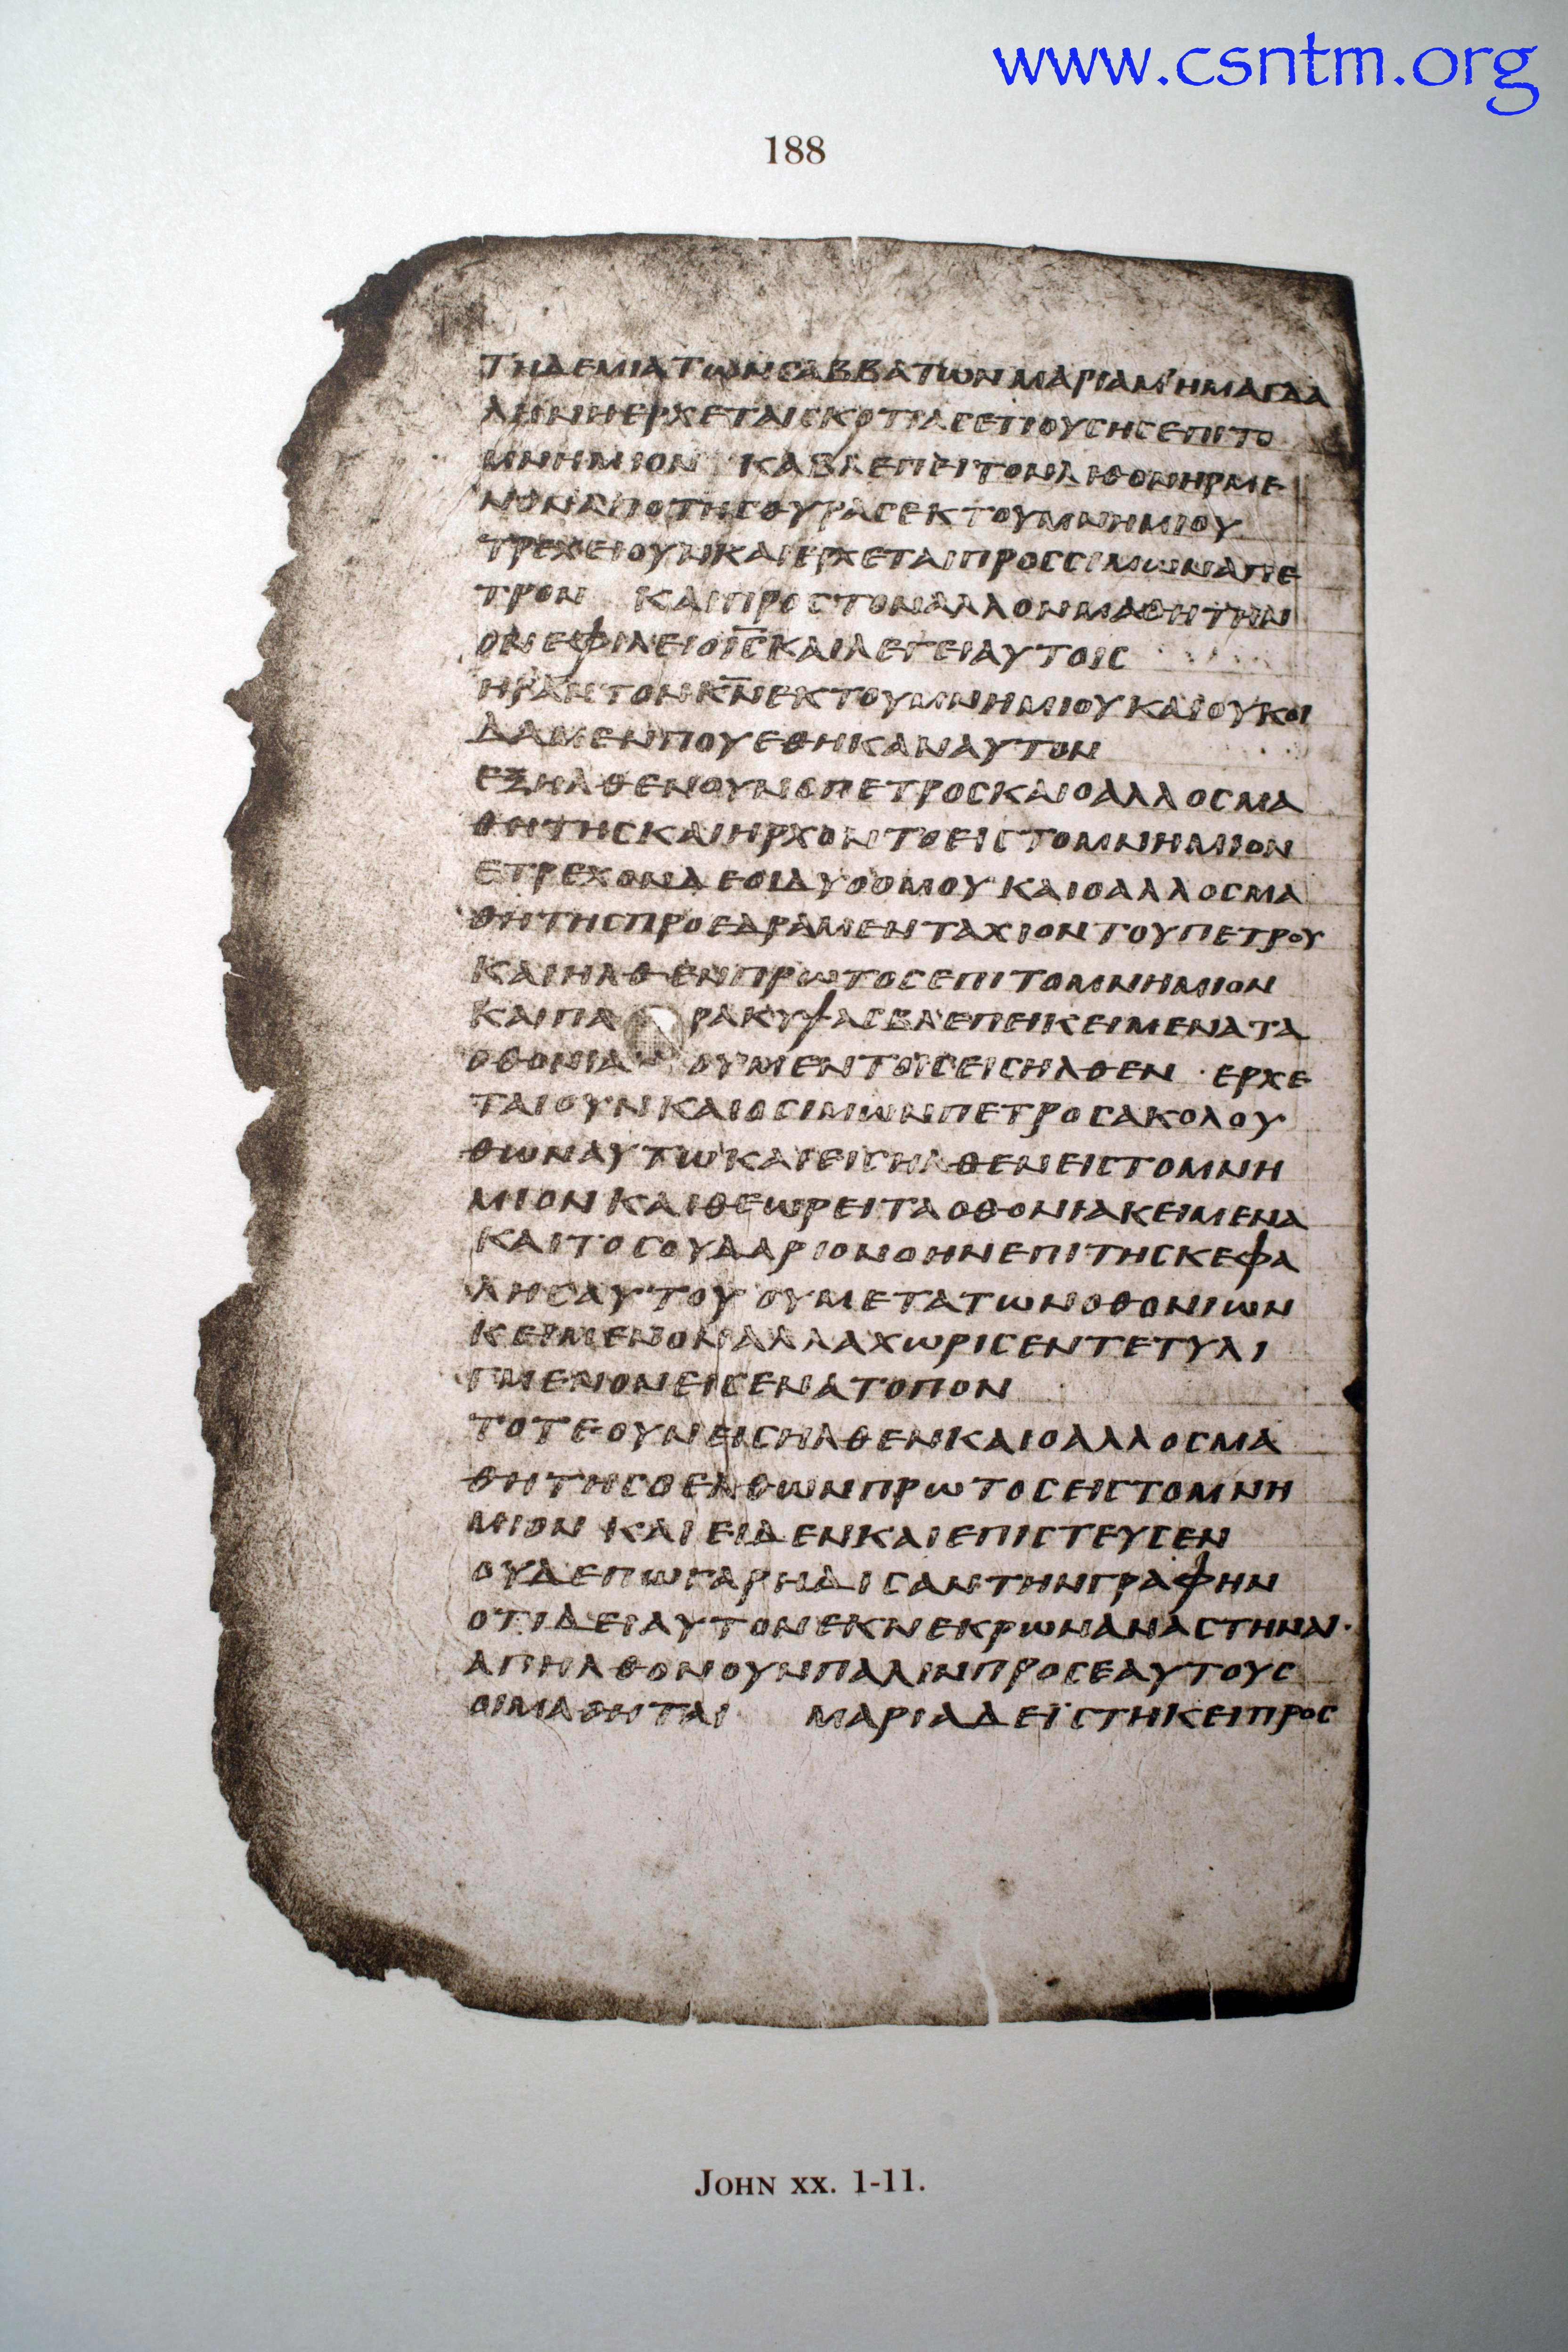 www.csntm.org
188
ΤΗΔΕΜΙΑΤΩΝСΑΒΒΑΤΩΝΜΑΡΙΑΜΗΜΑΓΔΑ
ΛΗΝΗΕΡΧΕΤΑΙСΚΟΤΙΑСΕΤΙΟΥСΗСΕΠΙΤΟ
ΜΝΗΜΙΟΝ ΚΑΒΛΕΠΕΙΤΟΝΛΙΘΟΝΗΡΜΕ
ΝΟΝΑΠΟΤΗСΘΥΡΑСΕΚΤΟΥΜΝΗΜΙΟΥ
ΤΡΕΧΕΙΟΥΝΚΑΙΕΡΧΕΤΑΙΠΡΟССΙΜΩΝΑΠΕ
ΤΡΟΝ ΚΑΙΠΡΟСΤΟΝΑΛΛΟΝΜΑΘΗΤΗΝ
ΟΝΕΦΙΛΕΙΟΙ̅С̅ΚΑΙΛΕΓΕΙΑΥΤΟΙС
ΗΡΑΝΤΟΝΚ̅Ν̅ΕΚΤΟΥΜΝΗΜΙΟΥΚΑΙΟΥΚΟΙ
ΔΑΜΕΝΠΟΥΕΘΗΚΑΝΑΥΤΟΝ
ΕΞΗΛΘΕΝΟΥΝΟΠΕΤΡΟСΚΑΙΟΑΛΛΟСΜΑ
ΘΗΤΗСΚΑΙΗΡΧΟΝΤΟΕΙСΤΟΜΝΗΜΙΟΝ
ΕΤΡΕΧΟΝΔΕΟΙΔΥΟΟΜΟΥΚΑΙΟΑΛΛΟСΜΑ
ΘΗΤΗСΠΡΟΕΔΡΑΜΕΝΤΑΧΙΟΝΤΟΥΠΕΤΡΟΥ
ΚΑΙΗΛΘΕΝΠΡΩΤΟСΕΠΙΤΟΜΝΗΜΙΟΝ
ΚΑΙΠΑ ΡΑΚΥΨΑСΒΛΕΠΕΙΚΕΙΜΕΝΑΤΑ
ΟΘΟΝΙΑ ΟΥΜΕΝΤΟΙСΕΙСΗΛΘΕΝ · ΕΡΧΕ
ΤΑΙΟΥΝΚΑΙΟСΙΜΩΝΠΕΤΡΟСΑΚΟΛΟΥ
ΘΩΝΑΥΤΩΚΑΙΕΙСΗΛΘΕΝΕΙСΤΟΜΝΗ
ΜΙΟΝΚΑΙΘΕΩΡΕΙΤΑΟΘΟΝΙΑΚΕΙΜΕΝΑ
ΚΑΙΤΟСΟΥΔΑΡΙΟΝΟΗΝΕΠΙΤΗСΚΕΦΑ
ΛΗСΑΥΤΟΥ ΟΥΜΕΤΑΤΩΝΟΘΟΝΙΩΝ
ΚΕΙΜΕΝΟΝΑΛΛΑΧΩΡΙСΕΝΤΕΤΥΛΙ
ΓΜΕΝΟΝΕΙСΕΝΑΤΟΠΟΝ
ΤΟΤΕΟΥΝΕΙСΗΛΘΕΝΚΑΙΟΑΛΛΟСΜΑ
ΘΗΤΗСΟΕΛΘΩΝΠΡΩΤΟСΕΙСΤΟΜΝΗ
ΜΙΟΝ ΚΑΙΕΙΔΕΝΚΑΙΕΠΙСΤΕΥСΕΝ
ΟΥΔΕΠΩΓΑΡΗΔΙСΑΝΤΗΝΓΡΑΦΗΝ
ΟΤΙΔΕΙΑΥΤΟΝΕΚΝΕΚΡΩΝΑΝΑСΤΗΝΑΙ·
ΑΠΗΛΘΟΝΟΥΝΠΑΛΙΝΠΡΟСΕΑΥΤΟΥС
ΟΙΜΑΘΗΤΑΙ ΜΑΡΙΑΔΕΪСΤΗΚΕΙΠΡΟС
JOHN XX. 1-11.